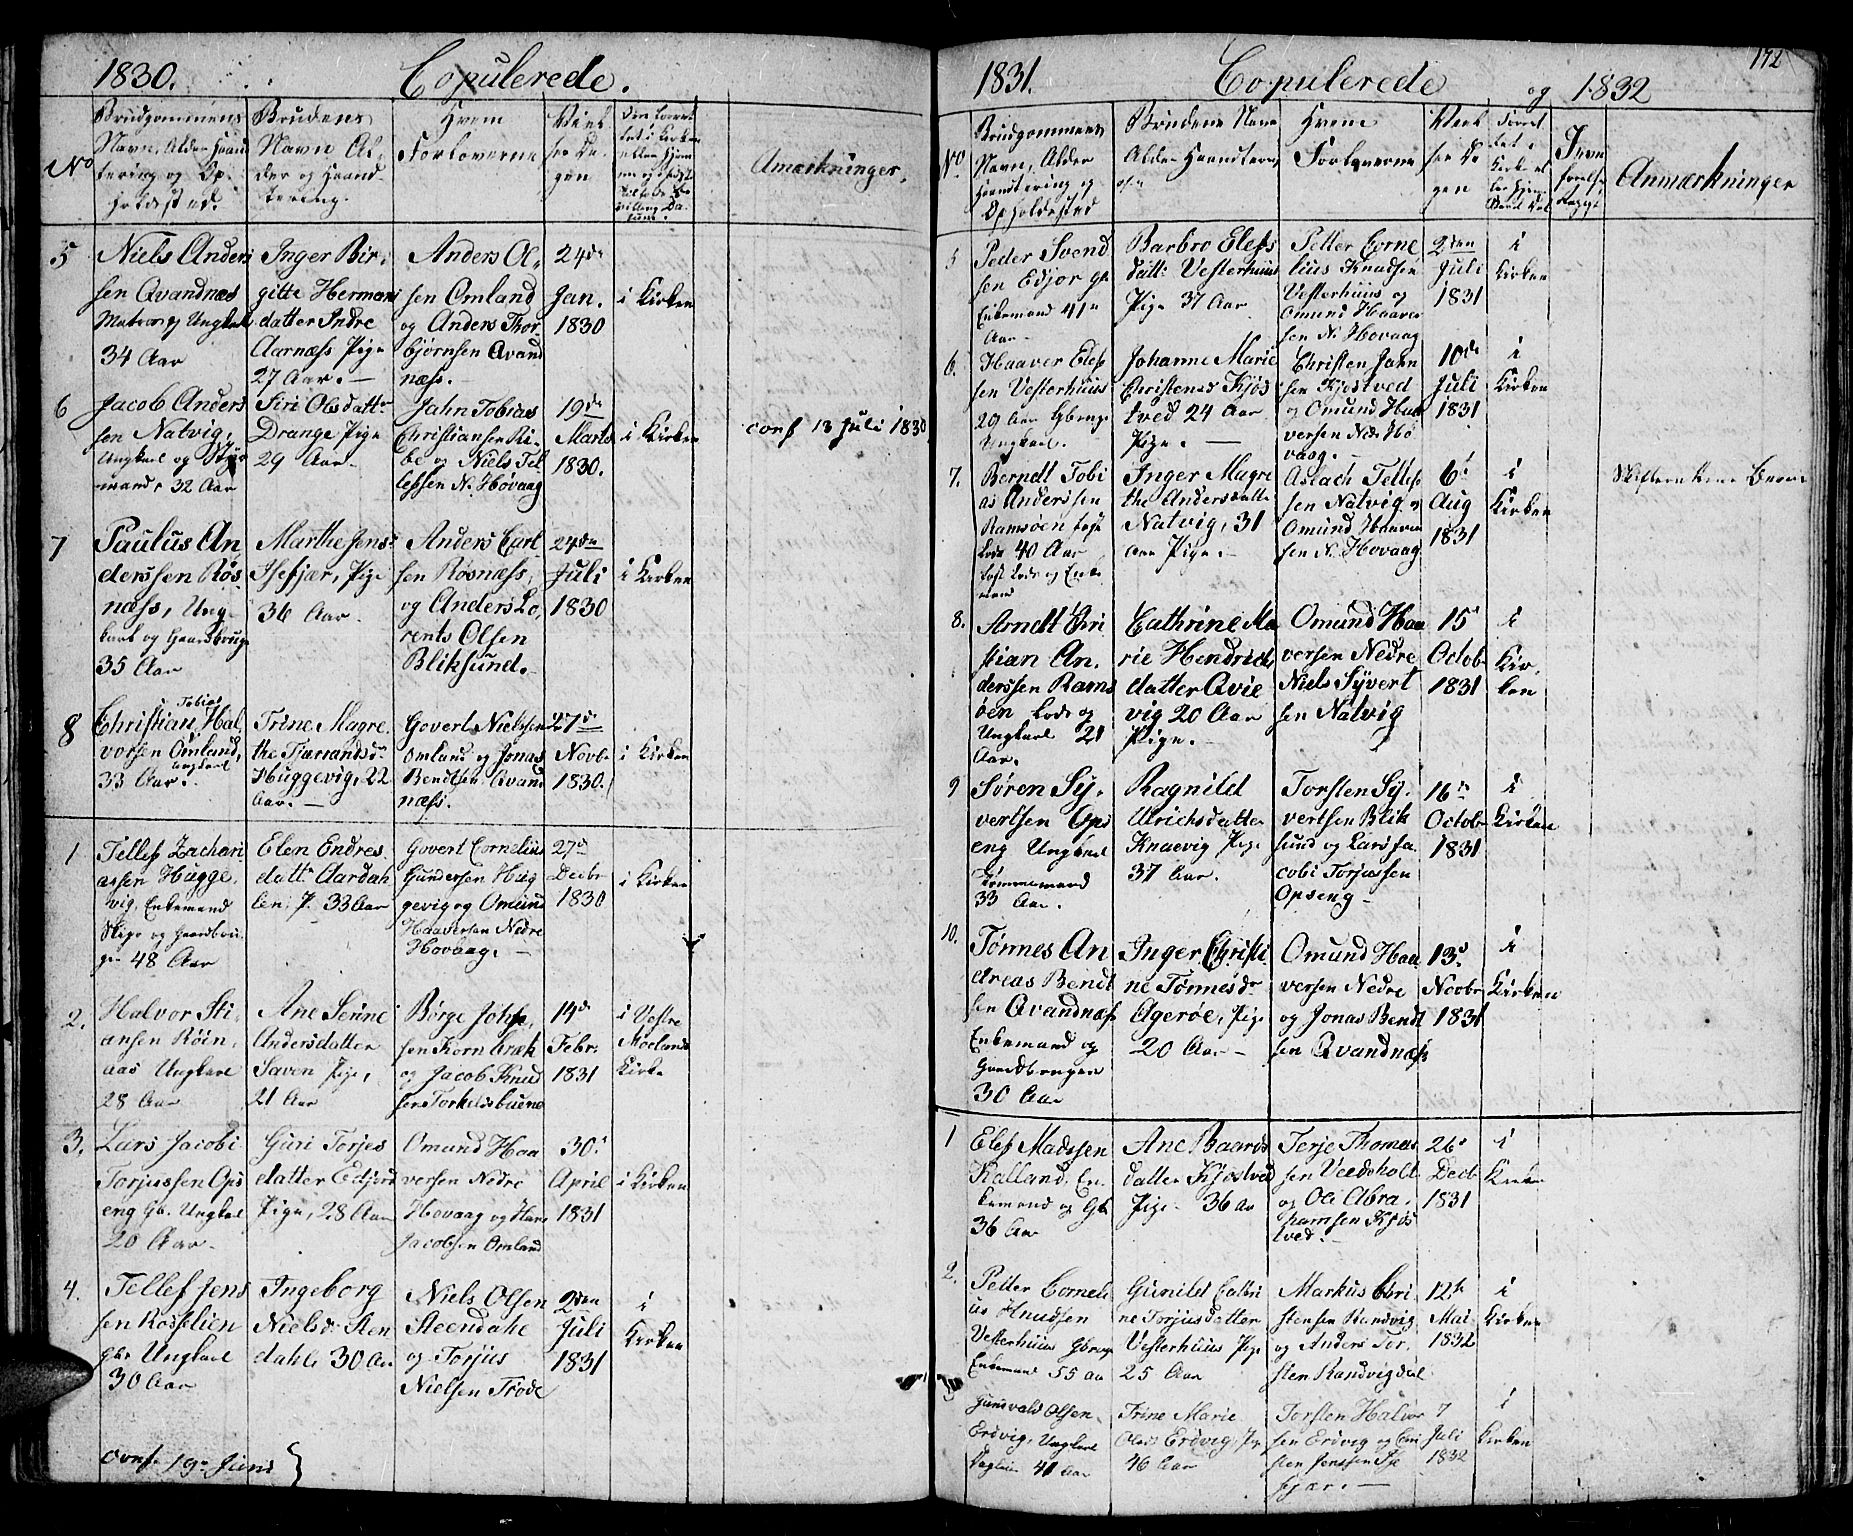 1830. Copulerede.
No
Brudgommens Navn, Alder, Haandtering og Opholdsted.
Brudens Navn Alder og Haandtering.
Hvem Forloverne
Viet hvad Dagen
Anmærkninger.
5
Niels Anders
sen Qvandnæs
Matros og Ungkarl
34 Aar
Inger Bir,
gitte Hermans
datter Indre
Aarnæss Pige
27 Aar.
Anders Ol,
sen Omland
og Anders Thor
bjørnsen Qvand
næss.
24de
Jan.
1830
i Kirken
6
Jacob Anders
sen Natvig,
Ungkarl og Styr
mand, 32 Aar
Siri Olsdattr
Drange Pige
29 Aar.
Jahn Tobias
Christiansen Ri-
be og Niels Tel
lessen N. Høvaag
19de
Marts
1830.
i Kirken
conf 13 Juli 1830
7
Paulus An
derssen Røs
næss, Ung-
karl og Gaardbruge
35 Aar
Marthe Jens
Isefjær, Pige
36 Aar.
Anders Carl
sen Røsnæss,
og Anders Lo,
rents Olsen
Bliksund.
24de
Juli
1830
i Kirken
8
Tobias
Christian Hal
vorsen Omland,
Ungkarl
33 Aar.
Trine Magre
the Tjærandsdr
Huggevig, 22
Aar.
Govert Nielssen
Omland og Jonas
Bendtsen Qvand
næss.
27de
Novbr
1830.
i Kirken
1
Tellef Zachari
assen Hugge,
vig, Enkemand
og Gaardbru
ger 48 Aar
Elen Endres
dattr Aardah
len, P. 33 Aar
Govert Cornelius
Gunderssen Hug
gevig og Omund
Haaversen Nedre
Hovaag.
27d
Decbr
1830
i Kirken
2.
Halvor Sti,
ansen Røin,
aas Ungkarl
28 Aar
Ane Serine
Andersdatter
Saven Pige,
21 Aar
Børge Johs,
sen Kornbræk
og Jacob Knud
sen Torkildsbuene
14d
Febr.
1831
i Vestre
Moelands
Kirke
3.
Lars Jacobi
Torjussen Ops
eng Gb. Ungkarl
20 Aar.
Guri Torjes
datter Edjord
Pige, 28 Aar
Omund Haa
versen Nedre
Hovaag og Hans
Jacobsen Omland
30d
April
1831
i Kirken
4.
Tellef Jens
sen Rosselien
gbr Ungkarl
30 Aar
Ingeborg
Nielsdr Steen
dahl 30 Aar
Niels Olsen
Steendahl
og Torjus
Nielsen Trøde
2den
Juli
1831
i
Kirken
conf 19de Juni
172
1831. Copulerede og 1832
No
Brudgommens Navn, Alder Haandtering og Opholdsted
Brudens Navn Alder Haandtering
Hvem Forloverne
Anmærkninger
5
Peder Svend
sen Edjor gbr
Enkemand 41
Aar
Barbro Elefs
datt: Vesterhuus
Pige 37 Aar
Petter Corne
lius Knudsen
Vesterhuus og
Omund Haaver
sen N. Hovaag
2den
Juli
1831
i
Kirken
6.
Haaver Elefs
sen Vesterhuus
29 Aar Gbruger
Ungkarl.
Johanne Marie
Christens Kjøs
tved 24 Aar
Pige.
Christen Jahn
sen Kjøstved
og Omund Haa
versen Ned: Hø
vaag.
10de
Juli
1831
i
Kirken
7.
Berndt Tobi
as Anderssen
Ramsøen fast
Lods 40 Aar
fast Lods og Enke
mand
Inger Magre
the Andersdatter
Natvig, 31
Aar Pige.
Aslach Tellef
sen Natvig og
Omund Haaver
sen N. Hovaag
6t
Aug
1831
i
Kirken
8.
Arndt Chri
stian An,
derssen Rams
øen Lods og
Ungkarl 21
Aar.
Cathrine Ma
rie Hendrichs
datter Qvie
vig 20 Aar
Pige.
Omund Haa
versen Nedre
Niels Syvert
sen Natvig
15d
Octob
1831
i
Kir,
ken
9
Søren Sy,
vertsen Ops
eng Ungkarl
Tømmermand
33 Aar.
Ragnild
Ulrichsdatter
Knævig Pige
37 Aar.
Torsten Sy,
vertsen Blik
sund og Lars Ja
cobi Torjussen
Opseng
16de
Octobr
1831
i
Kirken
10.
Tønnes An
dreas Bendt
sen Qvandnæss
Enkemand og
Gaardbruger
30 Aar
Inger Christi
ne Tønnesdr
Agerøe, Pige
20 Aar
Omund Haa
versen Nedre
og Jonas Bendt
sen Qvandnæss
13d
Novbr
1831
i
Kirken
1
Elef Madssen
Kalland, En
kemand og Gb
36 Aar
Ane Baards
datter Kjøstved
Pige 36 Aar
Terje Thomas
sen Veedeholt
og Ole Abra,
hamsen Kjøs
tved.
26d
Decb
1831
i
Kirken
2.
Petter Corneli
us Knudsen
Vesterhuus Gbruger
Enkemand 55 Aar
Gunild Cathri
ne Torjusdatter
Vesterhuus Pige
25 Aar
Markus Chri
stensen Randvig
og Anders Tor
sten Randvigdal
12te
Mai
1832
i
Kirken
Gunvald Olsen
Erdvig, Ungkarl
41 Aar
Trine Marie
Olsdr Erdvig, Pige
46 Aar
Torsten Halvor
sen Erdvig og Chri
sten Jenssen Ise
fjær.
7
Juli
1832
i
Kirken